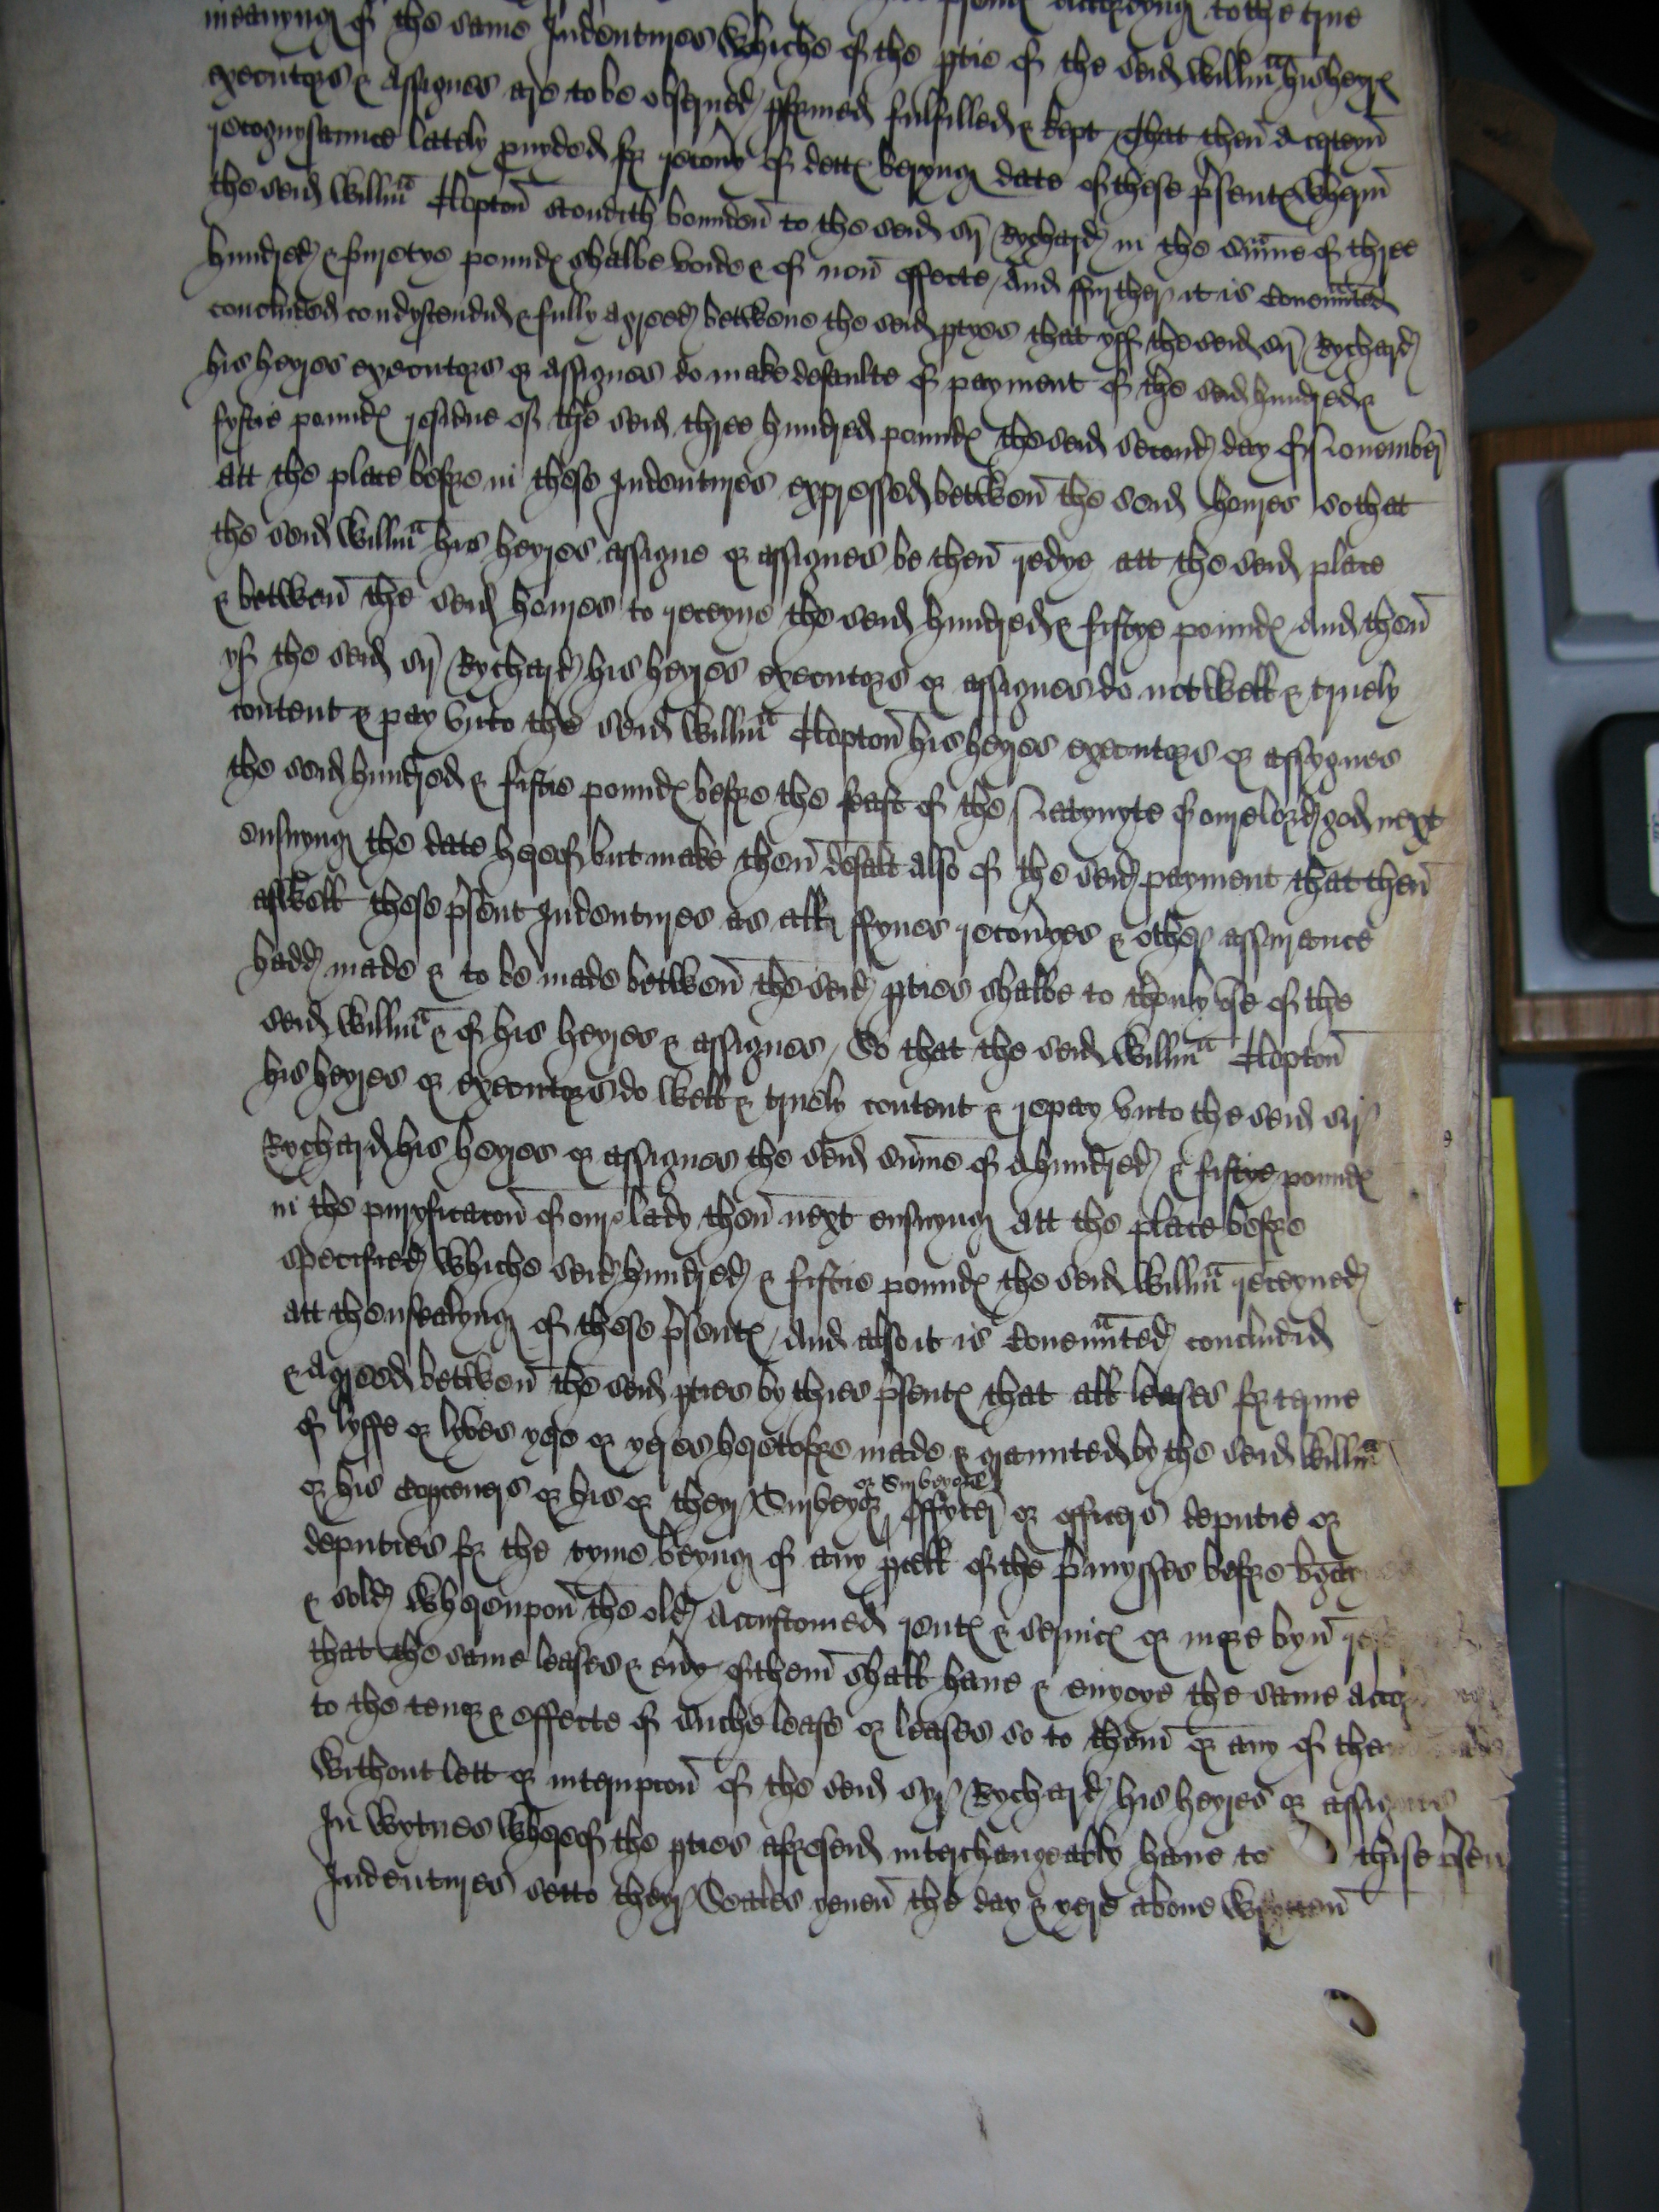 p̃sentꝭ accordyng to the true
meanyng of the same Indentures whiche of the ꝑtie of the seid Willm̃ his heyrꝭ
executors & assignes are to be obs͛ued ꝑformed fulfilled & kept that then̄ a c͛teyn̄
recognysaunce lately ꝓuyded for recou͛y of dettꝭ beryng date of these p̃sentꝭ Wherin̄
the seid Willm̃ Clopton̄ stondith bounden̄ to the seid S͛r Rychard in the Sum̄e of three
hundred & poundꝭ shalbe voide & of non̄ effecte / And further it is Couenñted
concluded condyscendid & fully agreed betwene the seid ꝑtyes that yff the seid S͛r Rychard
his heyres executors or assignes do make defaulte of payment of the seid hundred &
fyftie poundꝭ residue of the seid three hundred poundꝭ the seid second day of Nouember
att the place before in these Indentures expressed betwen̄ the seid houres so that
the seid Willm̃ his heyres assigne or assignes be then̄ redye att the seid place
& betwen̄ the seid houres to receyue the seid hundred & fiftye poundꝭ And then̄
yf the seid S͛r Rychard his heyres executors or assignes do not well & truely
content & pay vnto the seid Willm̃ Clopton̄ his heyres executors or assygnes
the seid hundred & fiftie poundꝭ before the feast of the Natyuyte of oure lord god next
ensuyng the date hereof but make then̄ defalt also of the seid payment that then̄
aswell these p̃sent Indentures as all ffynes recou͛yes & other assurance
hadd made & to be made betwen̄ the seid ꝑties shalbe to thonly vse of the
seid Willm̃ & of his heyres & assignes / So that the seid Willm̃ Clopton̄
his heyres or executors do well & truely content & repay vnto the seid S͛r
Rychard his heyres or assignes the seid Sum̄e of a hundred & fiftye poundꝭ
in the puryficacon̄ of oure lady then̄ next ensuyng att the place before
specified whiche seid hundred & fiftie poundꝭ the seid Willm̃ receyued
att thensealyng of these p̃sentꝭ / And also it is Couenñted concludid
& agreed betwen̄ the seid ꝑties by thies p̃sentꝭ that all leases for terme
of lyffe or lyves yere or yeres heretofore made & graunted by the seid Willm̃
or his or his or theyr Surveyor or Surveyors Offycer or officers deputie or
deputies for the tyme beyng of any ꝑcell of the p̃mysses before
& sold Wherevpon̄ the old Accustomed rentꝭ & seruicꝭ or more byn̄
that the same leases & eu͛y of them̄ shall haue & enyoye the same
to the tenor & effecte of suche lease or leases so to them̄ or any of
Without lett or interrupcon̄ of the seid Syr Rychard his heyres or assignes
In Wytnes Whereof the ꝑties aforeseid interchangeably haue to thise p̃sen
Indentures sette theyr Seales yeuen̄ the day & yere aboue Wrytten̄